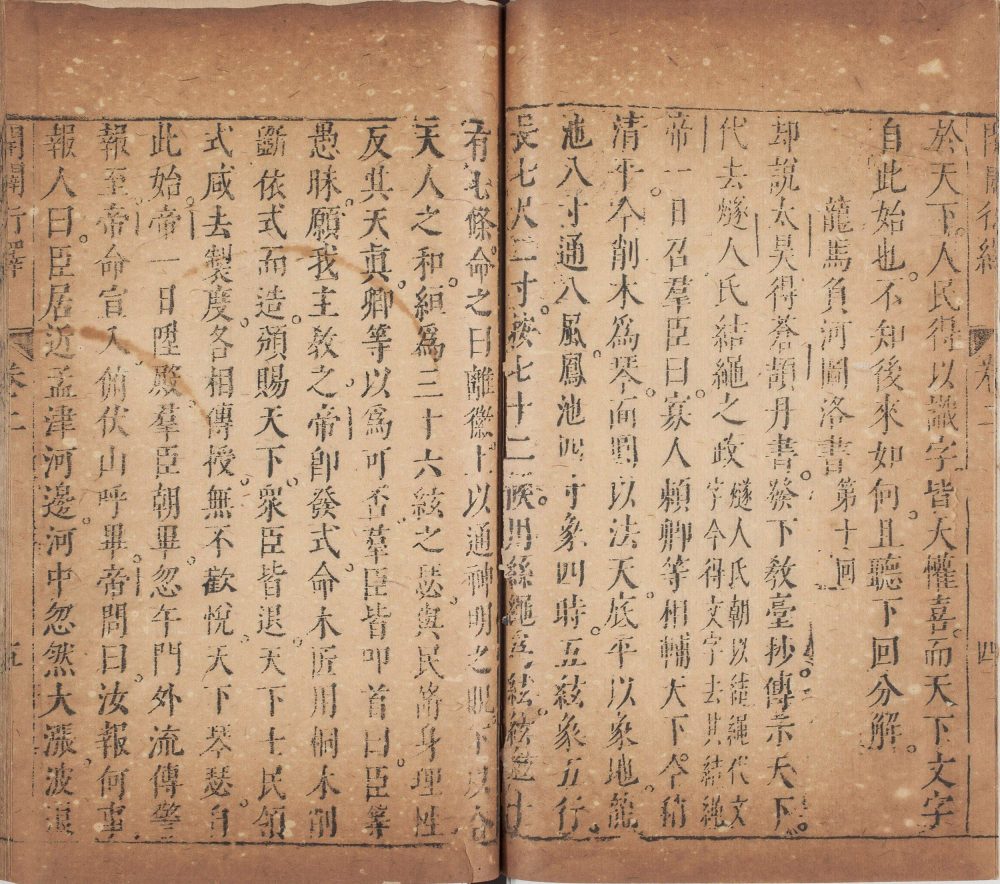 開闢衍繹 卷二 四
於天下人民得以識字皆大懽喜而天下文字
自此始也不知後來如何且聽下回分解
龍馬負河圖洛書 第十回
却說太昊得蒼頡丹書發下敎臺抄傳示天下
代去燧人氏結繩之政 燧人氏朝以結繩代文
字今得文字去其結繩
帝一日召羣臣曰寡人賴卿等相輔天下今稍
清平今削木爲琴面圓以法天底平以象地龍
池八寸通八風鳳池四寸象四時五絃象五行
長七尺二寸按七十二候用絲繩爲絃絃
有七條命之曰離徽十以通神明之下以合
天人之和絙爲三十六絃之瑟與民脩身理性
反其天眞卿等以爲可否羣臣皆叩首曰臣等
愚昧願我主敎之帝卽發式命木匠用桐木削
斷依式而造頒賜天下衆臣皆退天下士民領
式咸去製度各相傳授無不歡悅天下琴瑟自
此始帝一日陞殿羣臣朝畢忽午門外流傳警
報至帝命宣入俯伏山呼畢帝問曰汝報何事
報人曰臣居近孟津河邊河中忽然大漲波浪
開闢衍繹 卷二 五